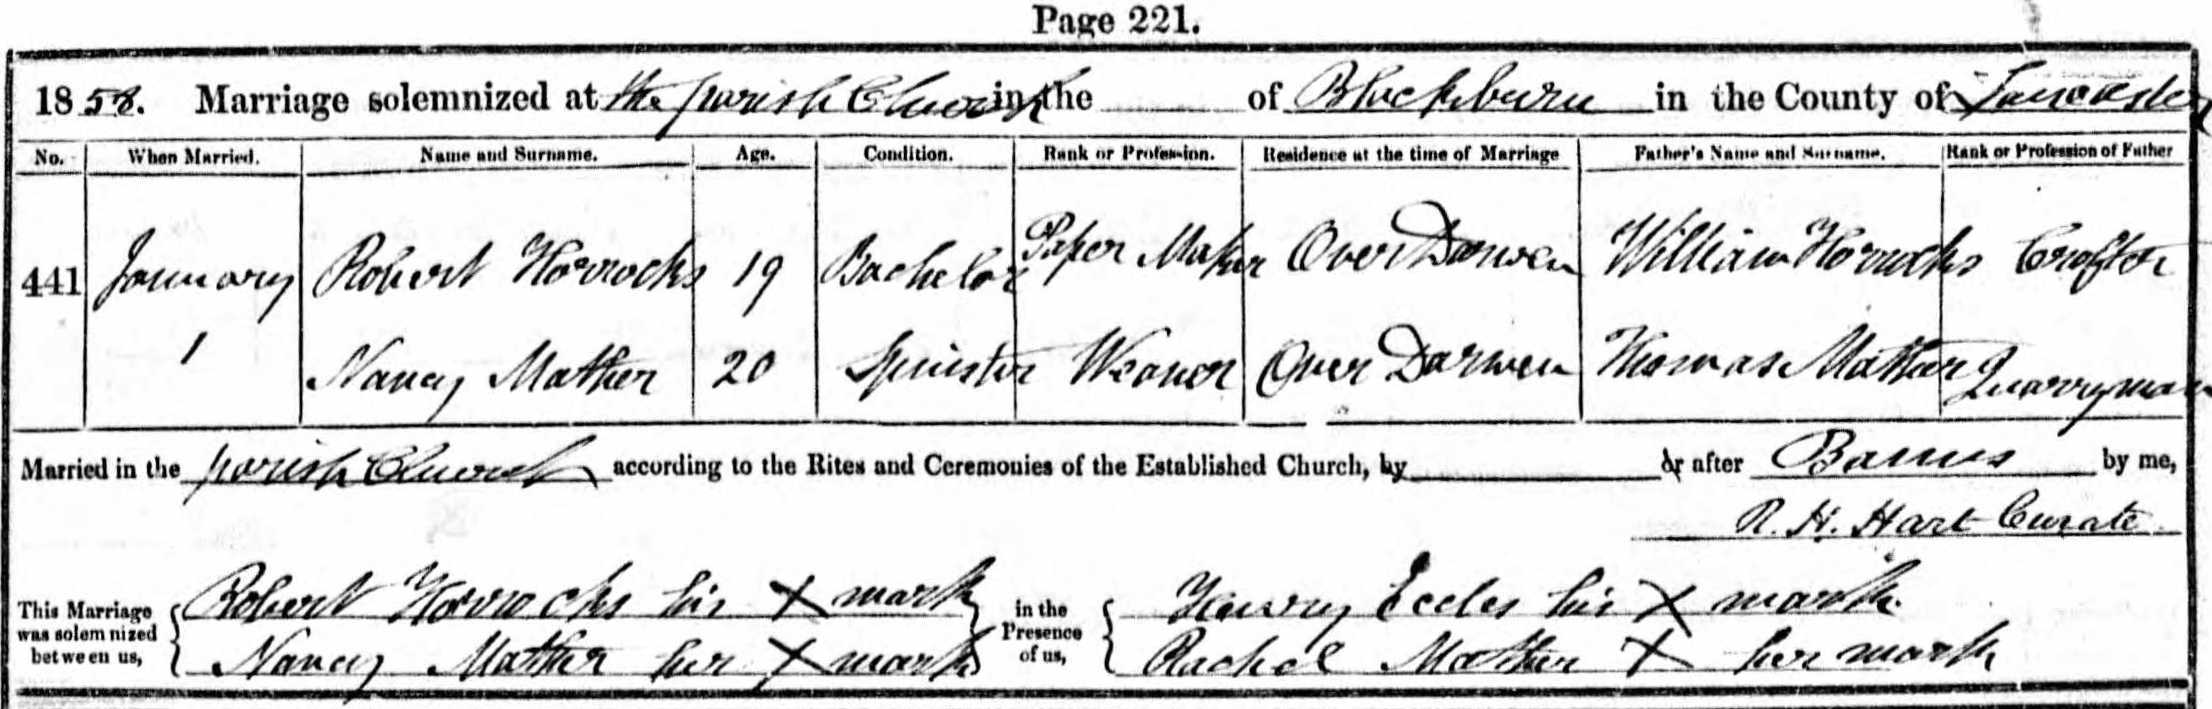 Page 221.
1858. Marriage solemnized at the parish Church in the of Blackburn in the County of Lancaster
No. When Married. Name and Surname. Age. Condition. Rank or Profession. Residence at the time of Marriage Father's Name and Surname. Rank or Profession of Father
441 January Robert Horrocks 19 Bachelor Paper Maker Over Darwen William Horrocks Crofter
1 Nancy Mather 20 Spinster Weaver Over Darwen Thomas Mather Quarryman
Married in the parish Church according to the Rites and Ceremonies of the Established Church, by or after Banns by me,
R. H. Hart Curate
This Marriage was solemnized between us, Robert Horrocks his X mark in the Presence of us, Henry Eccles his X mark
Nancy Mather her X mark Rachel Mather X her mark